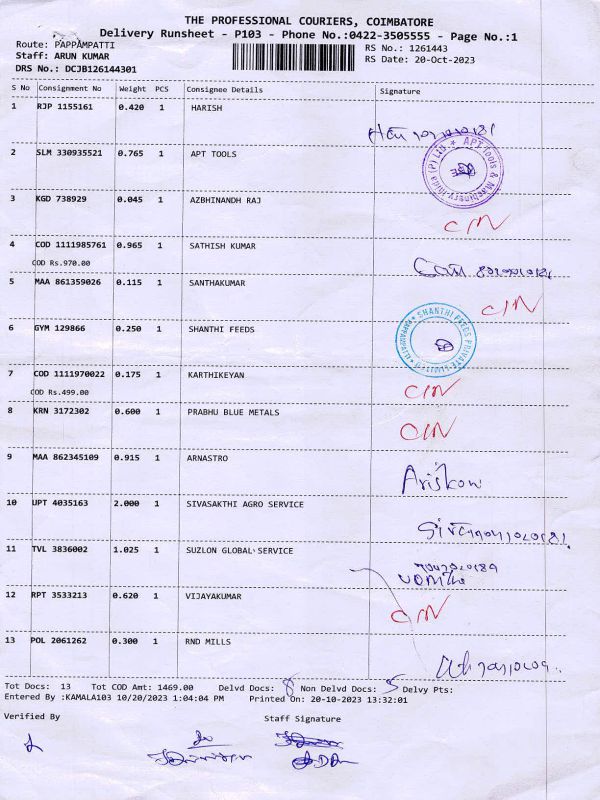 THE PROFESSIONAL COURIERS, COIMBATORE
Delivery Runsheet - P103 - Phone No.:0422-3505555 - Page No.:1
Route: PAPPAMPATTI
RS No.: 1261443
Staff: ARUN KUMAR
RS Date: 20-Oct-2023
DRS No.: DCJB126144301
S No Consignment No Weight PCS Consignee Details Signature
1 RJP 1155161 0.420 1 HARISH
2 SLM 330935521 0.765 1 APT TOOLS
APT Tools & Machinery India (P) Ltd.
3 KGD 738929 0.045 1 AZBHINANDH RAJ
4 COD 1111985761 0.965 1 SATHISH KUMAR
COD Rs.970.00
5 MAA 861359026 0.115 1 SANTHAKUMAR
6 GYM 129866 0.250 1 SHANTHI FEEDS
SHANTHI FEEDS PRIVATE LIMITED
7 COD 1111970022 0.175 1 KARTHIKEYAN
COD Rs.499.00
8 KRN 3172302 0.600 1 PRABHU BLUE METALS
9 MAA 862345109 0.915 1 ARNASTRO
10 UPT 4035163 2.000 1 SIVASAKTHI AGRO SERVICE
11 TVL 3836002 1.025 1 SUZLON GLOBAL SERVICE
12 RPT 3533213 0.620 1 VIJAYAKUMAR
13 POL 2061262 0.300 1 RND MILLS
Tot Docs: 13 Tot COD Amt: 1469.00 Delvd Docs: 8 Non Delvd Docs: 5 Delvy Pts:
Entered By :KAMALA103 10/20/2023 1:04:04 PM Printed On: 20-10-2023 13:32:01
Verified By Staff Signature